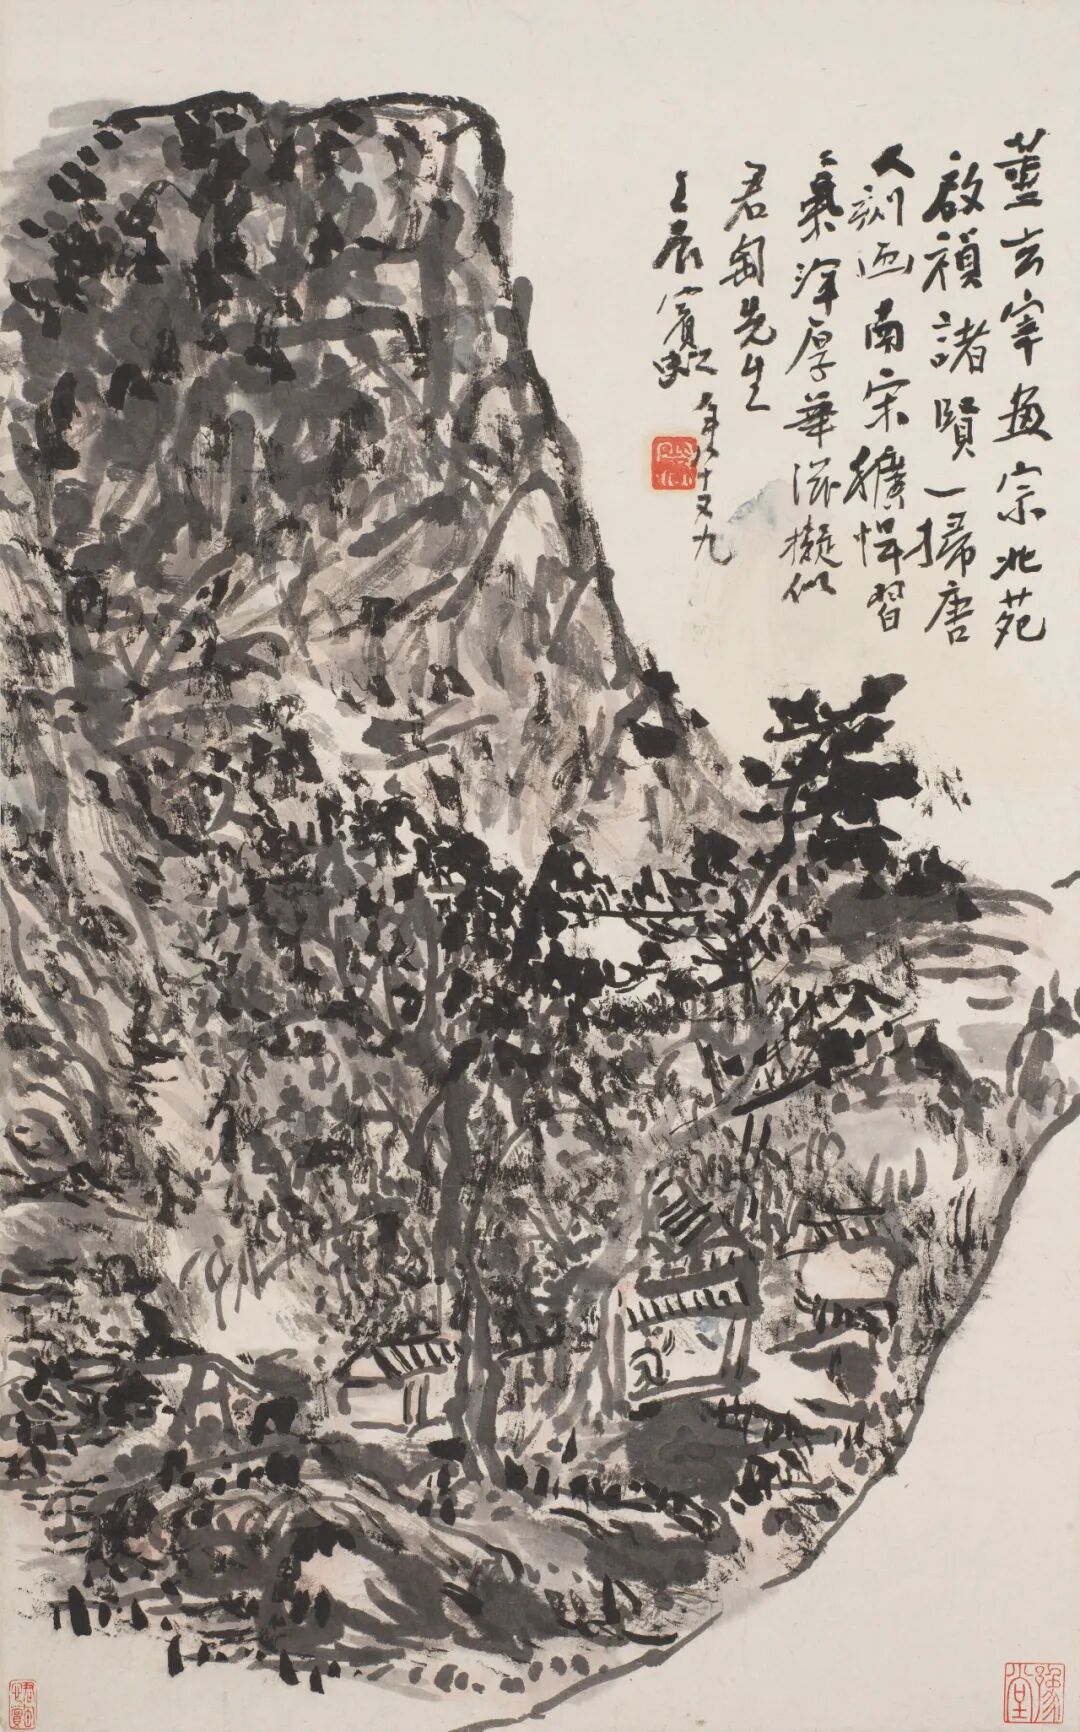 董玄宰畫宗北苑
啟禎諸賢一掃唐
人刻画南宋獷悍習
氣渾厚華滋擬似
君匋先生
壬辰賓虹年八十又九
豫堂